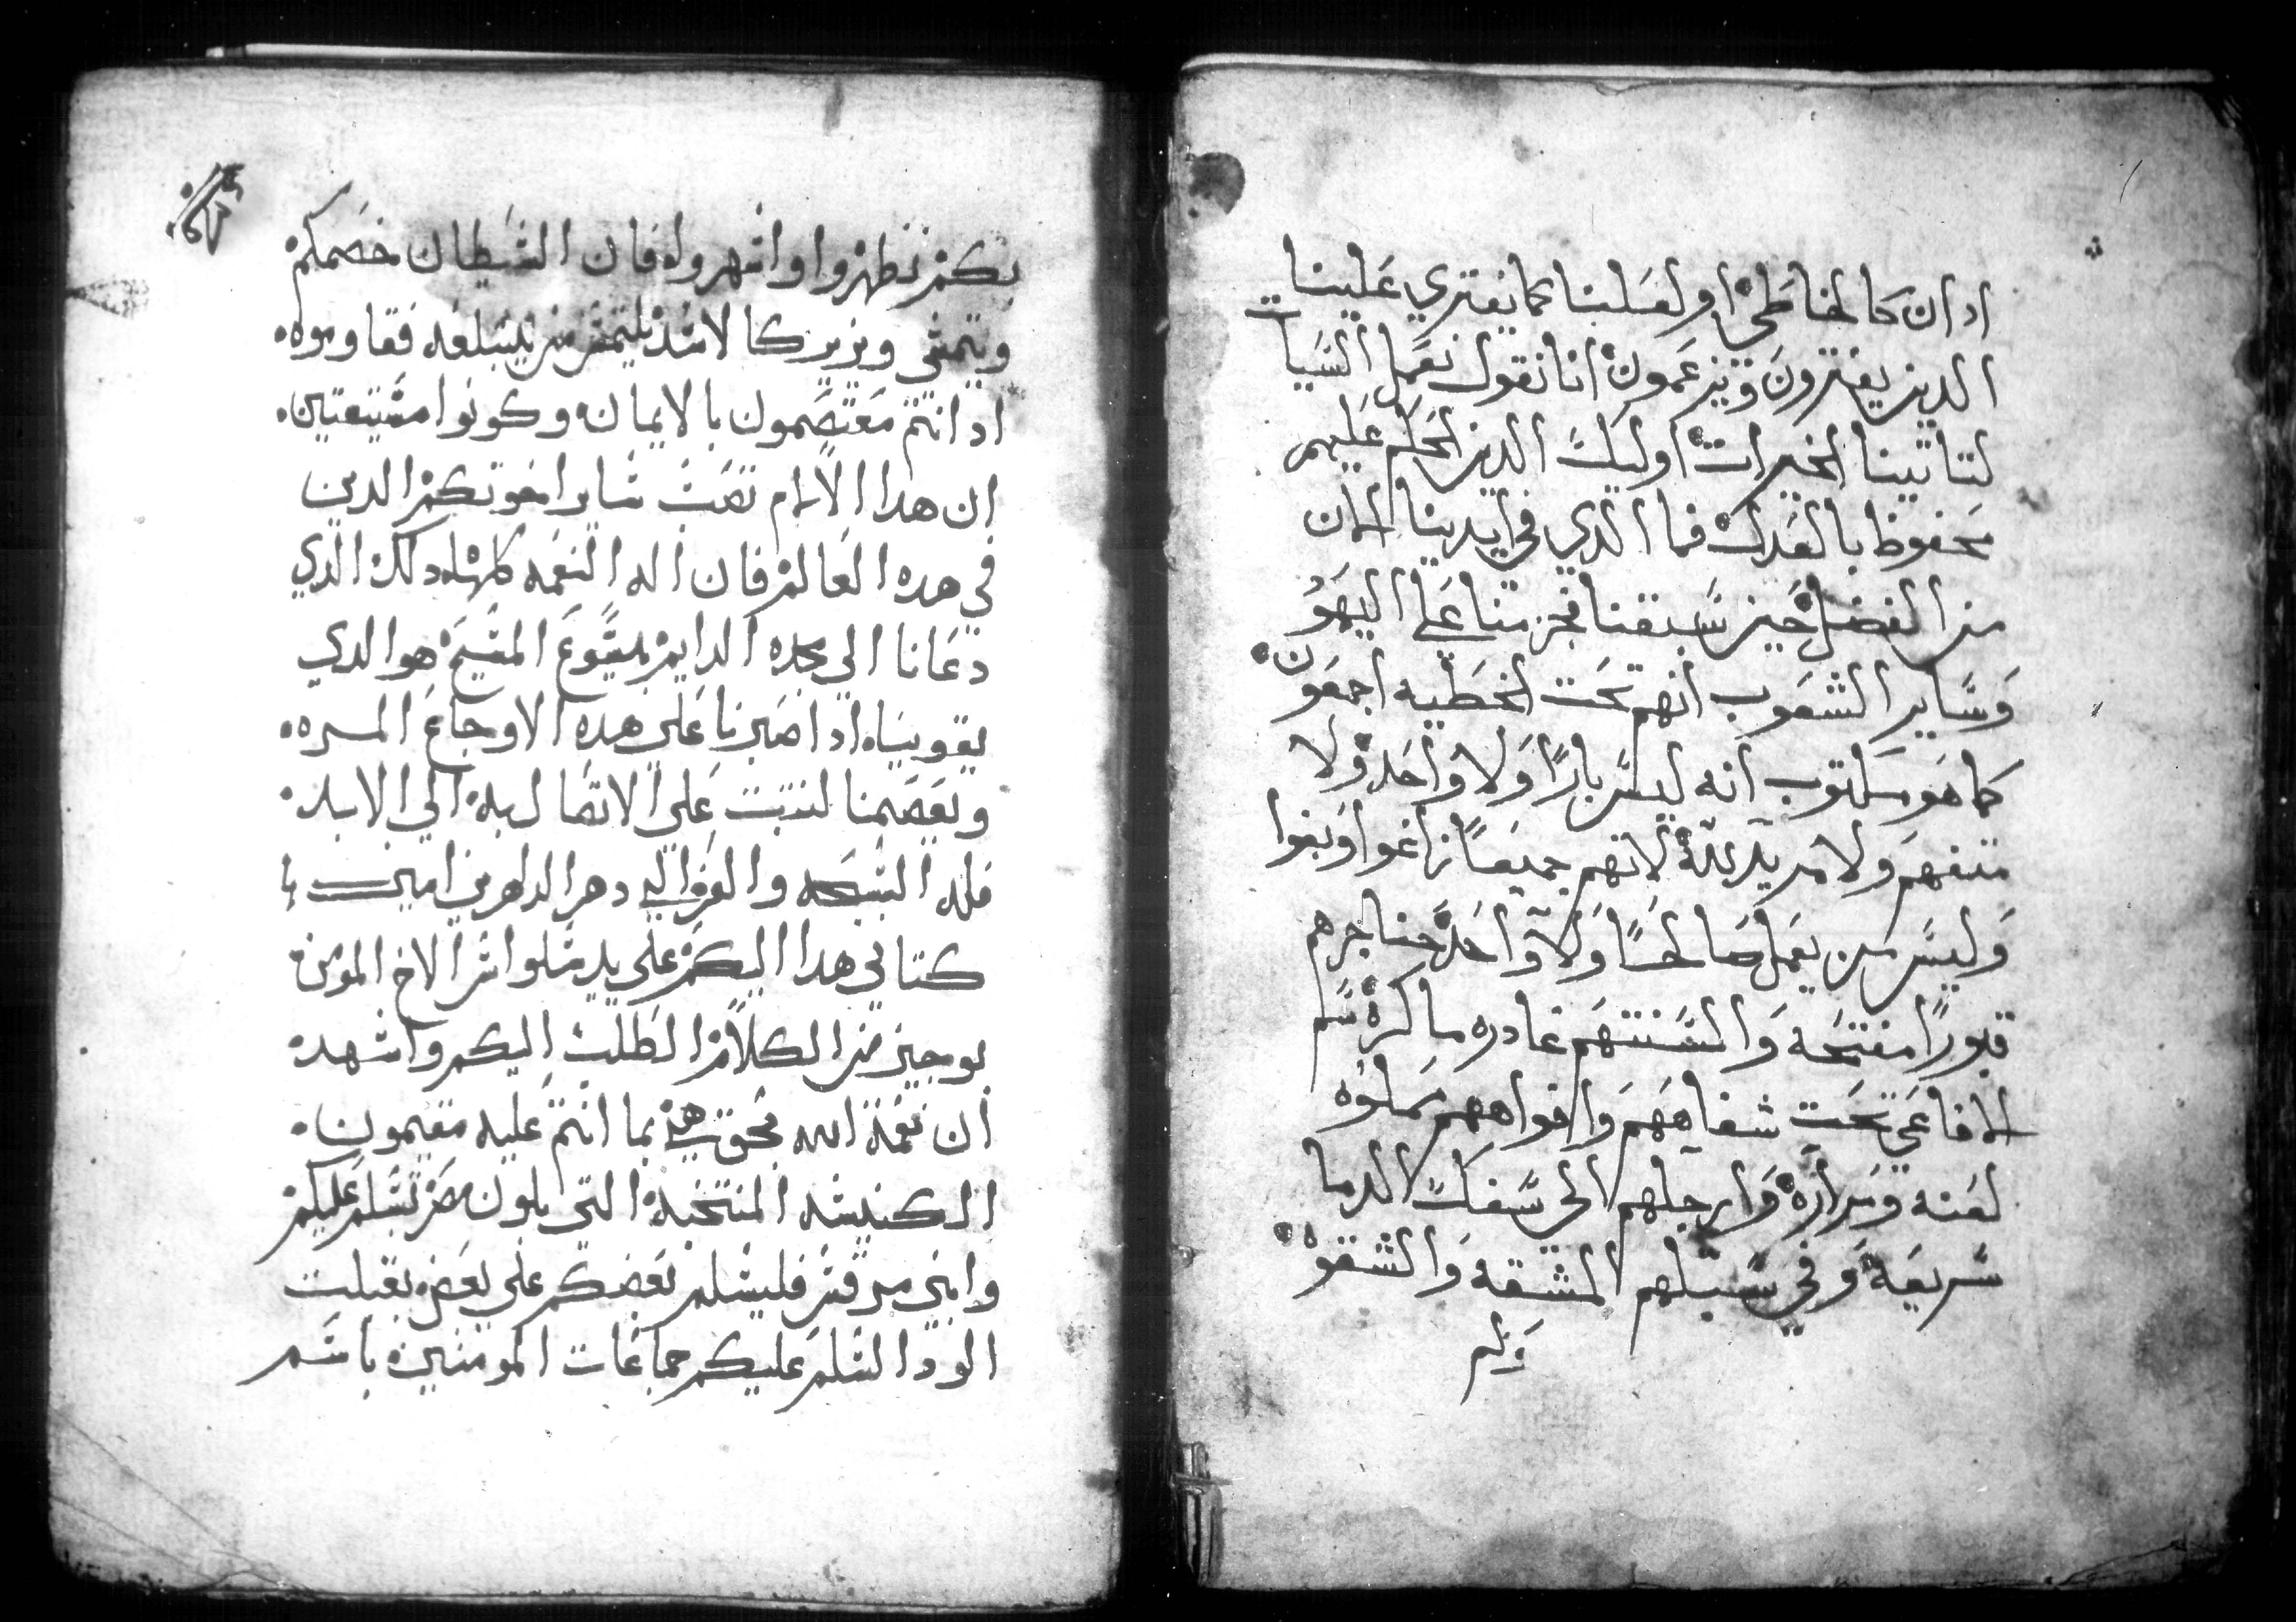 ادان كالخاطي او لعلنا كما يفتري علينا
الدين يفترون ويزعمون اننا نقول نعمل السيات
لتاتينا الخيرات اوليك الدين الحكم عليهم
محفوظ بالعدل فما الدي في ايدينا الان
من الفضل حين سبقنا فجزمنا علي اليهود
وساير الشعوب انهم تحت الخطيه اجمعون
كما هو مكتوب انه ليس بارا ولا واحد ولا
متفهم ولا مريد لله لانهم جميعا زاغوا وبغوا
وليس من يعمل صالحا ولا واحد حناجرهم
قبورا مفتحه والسنتهم غادره ماكره سم
الافاعي تحت شفاههم وافواههم مملوه
لعنه ومراره وارجلهم الي سفك الدما
سريعه وفي سبلهم المشقه والشقوه
ولم
بكم تطهروا واقهروه فان الشيطان خصمكم
ويتمشي ويزير كالاسد يلتمس من يبتلعه فقاوموه
ادانتم معتصمون بالايمان وكونوا مستيقنين
ان هدا الالام تصب ساير اخوتكم الدين
في هده العالم فان اله النعمه كلها دلك الدي
دعانا الي مجده الدايم بيسوع المسيح هو الدي
يقوينا ادا صبرنا علي هده الاوجاع اليسره
ويعصمنا لنتبت علي الاتصال به الي الابد
فله التسبحه والعز الي دهر الداهرين امين
كتابي هدا اليكم علي يد سلوانس الاخ المومن
بوجيز من الكلام الطلب اليكم واشهد
ان نعمة الله بحق هي بما انتم عليه مقيمون
الكنيسه المنتخبه التي ببابلون مصر تسلم عليكم
وابني مرقس فليسلم بعضكم علي بعض بقبلت
الود السلم عليكم جماعات المومنين باسم